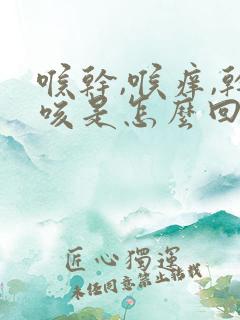 喉幹,喉痒,幹
咳是怎麼回
匠心獨運
未经同意禁止转载